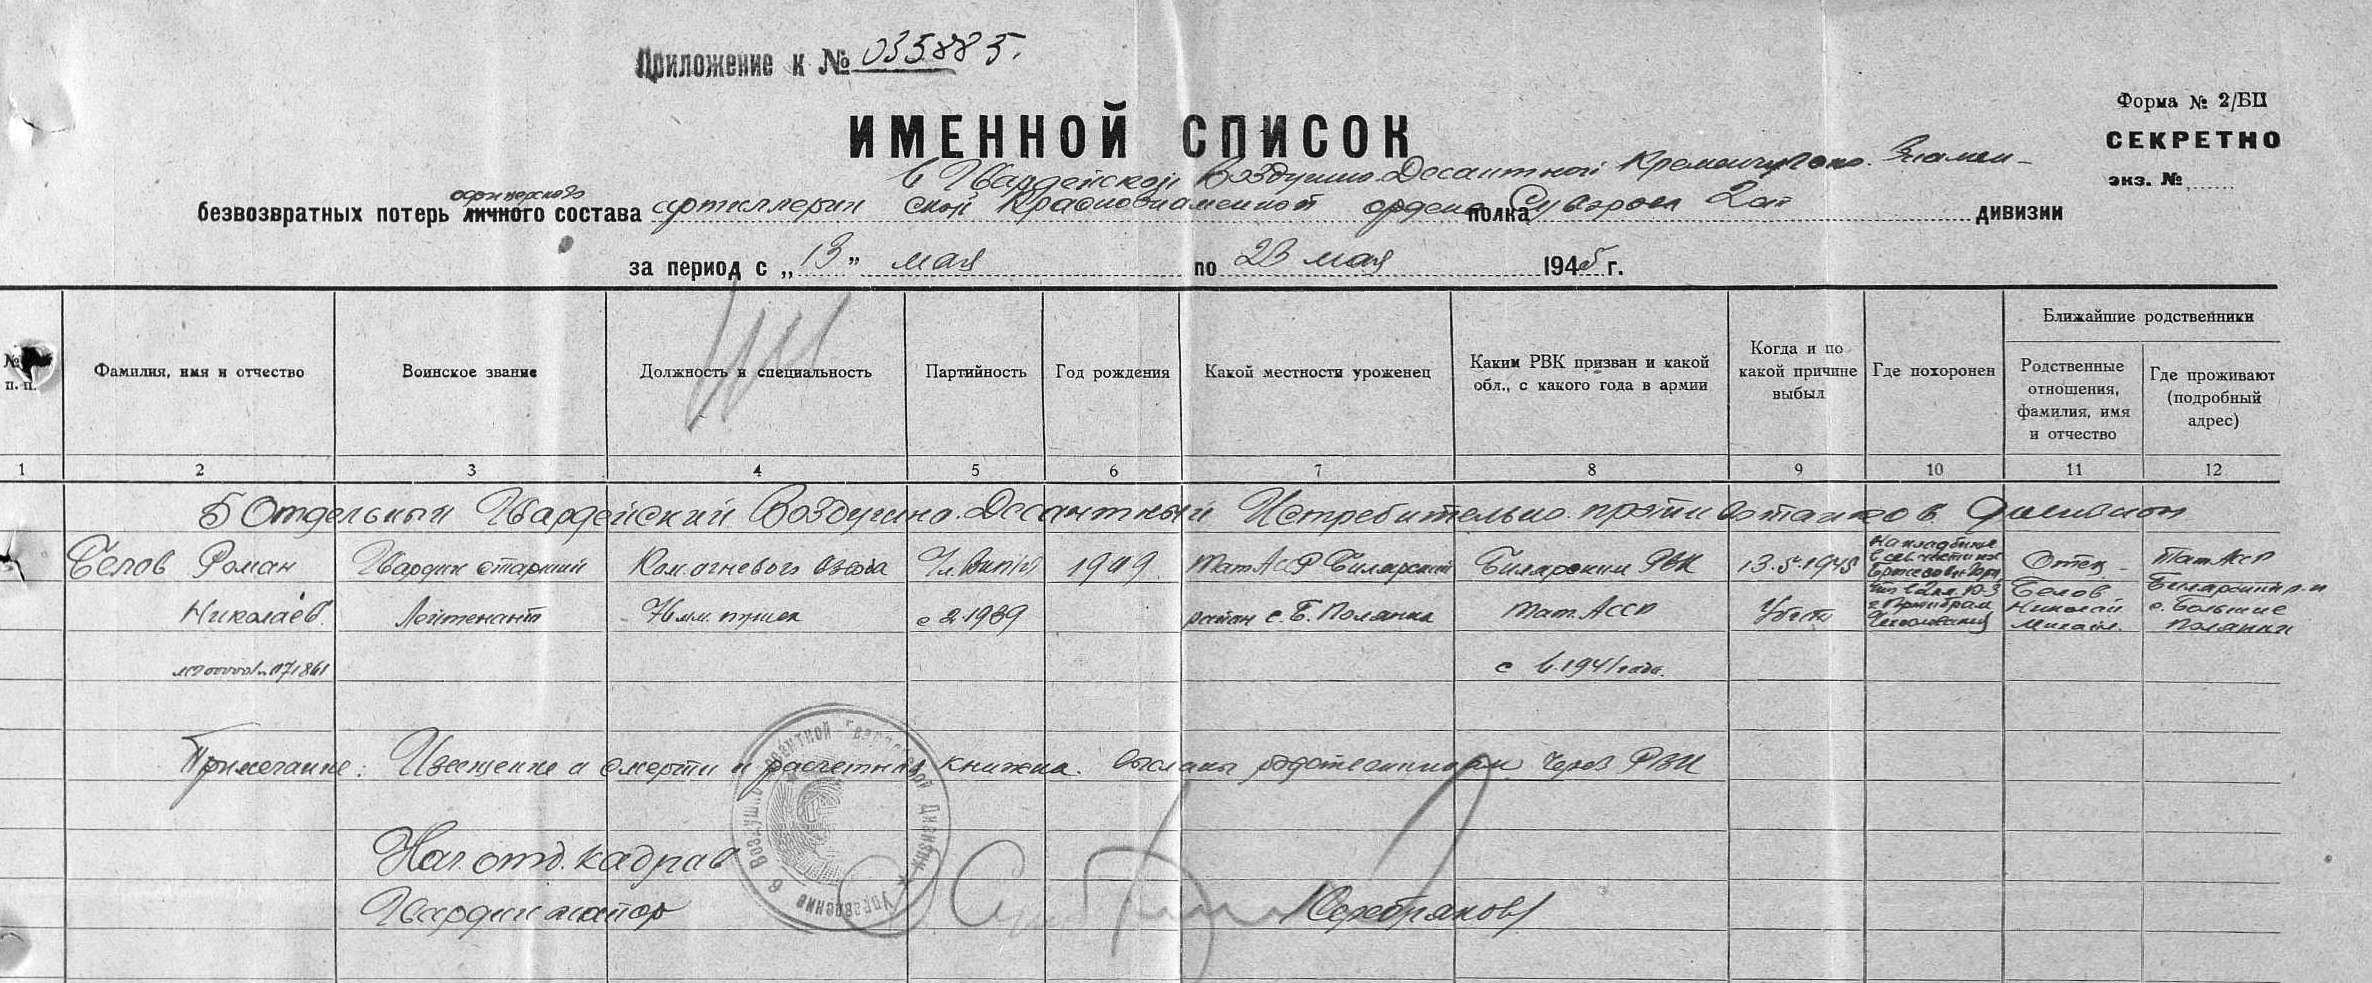 Приложение к № 035885.
Форма № 2/БП
ИМЕННОЙ СПИСОК
СЕКРЕТНО
экз. №
6 Гвардейской Воздушно-Десантной Кременчугско-Знамен-
офицерского
безвозвратных потерь личного состава артиллерии ской Краснознаменной ордена полка Суворова 2 ст дивизии
за период с „13" мая по 23 мая 1945 г.
№ п. п.
Фамилия, имя и отчество
Воинское звание
Должность и специальность
Партийность
Год рождения
Какой местности уроженец
Каким РВК призван и какой обл., с какого года в армии
Когда и по какой причине выбыл
Где похоронен
Ближайшие родственники
Родственные отношения, фамилия, имя и отчество
Где проживают (подробный адрес)
1 2 3 4 5 6 7 8 9 10 11 12
5 Отдельный Гвардейский Воздушно-Десантный Истребительно-противотанков. дивизион
Белов Роман Гвардии старший Ком. огневого взвода Чл. ВКП/б 1919 Тат АССР Билярский Билярским РВК 13.5.1945 На кладбище Отец - Тат АССР
Николаев. Лейтенант 76 мм. пушек с 1939 район с. Б. Полянка Тат. АССР Убит Белов Николай Михайл. Билярский р-н с. Большие Полянки
с 6.1941 года.
Примечание: Извещение о смерти и расчетная книжка высланы родственникам через РВК
Нач. отд. кадров
Гвардии майор /Серебряков/
Управление 6 Воздушно-десантной Гвардейской Дивизии